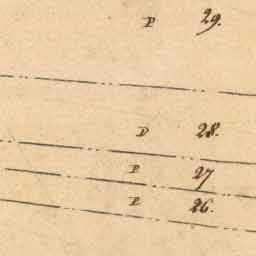 P 29.
P 28.
P 27
P 26.